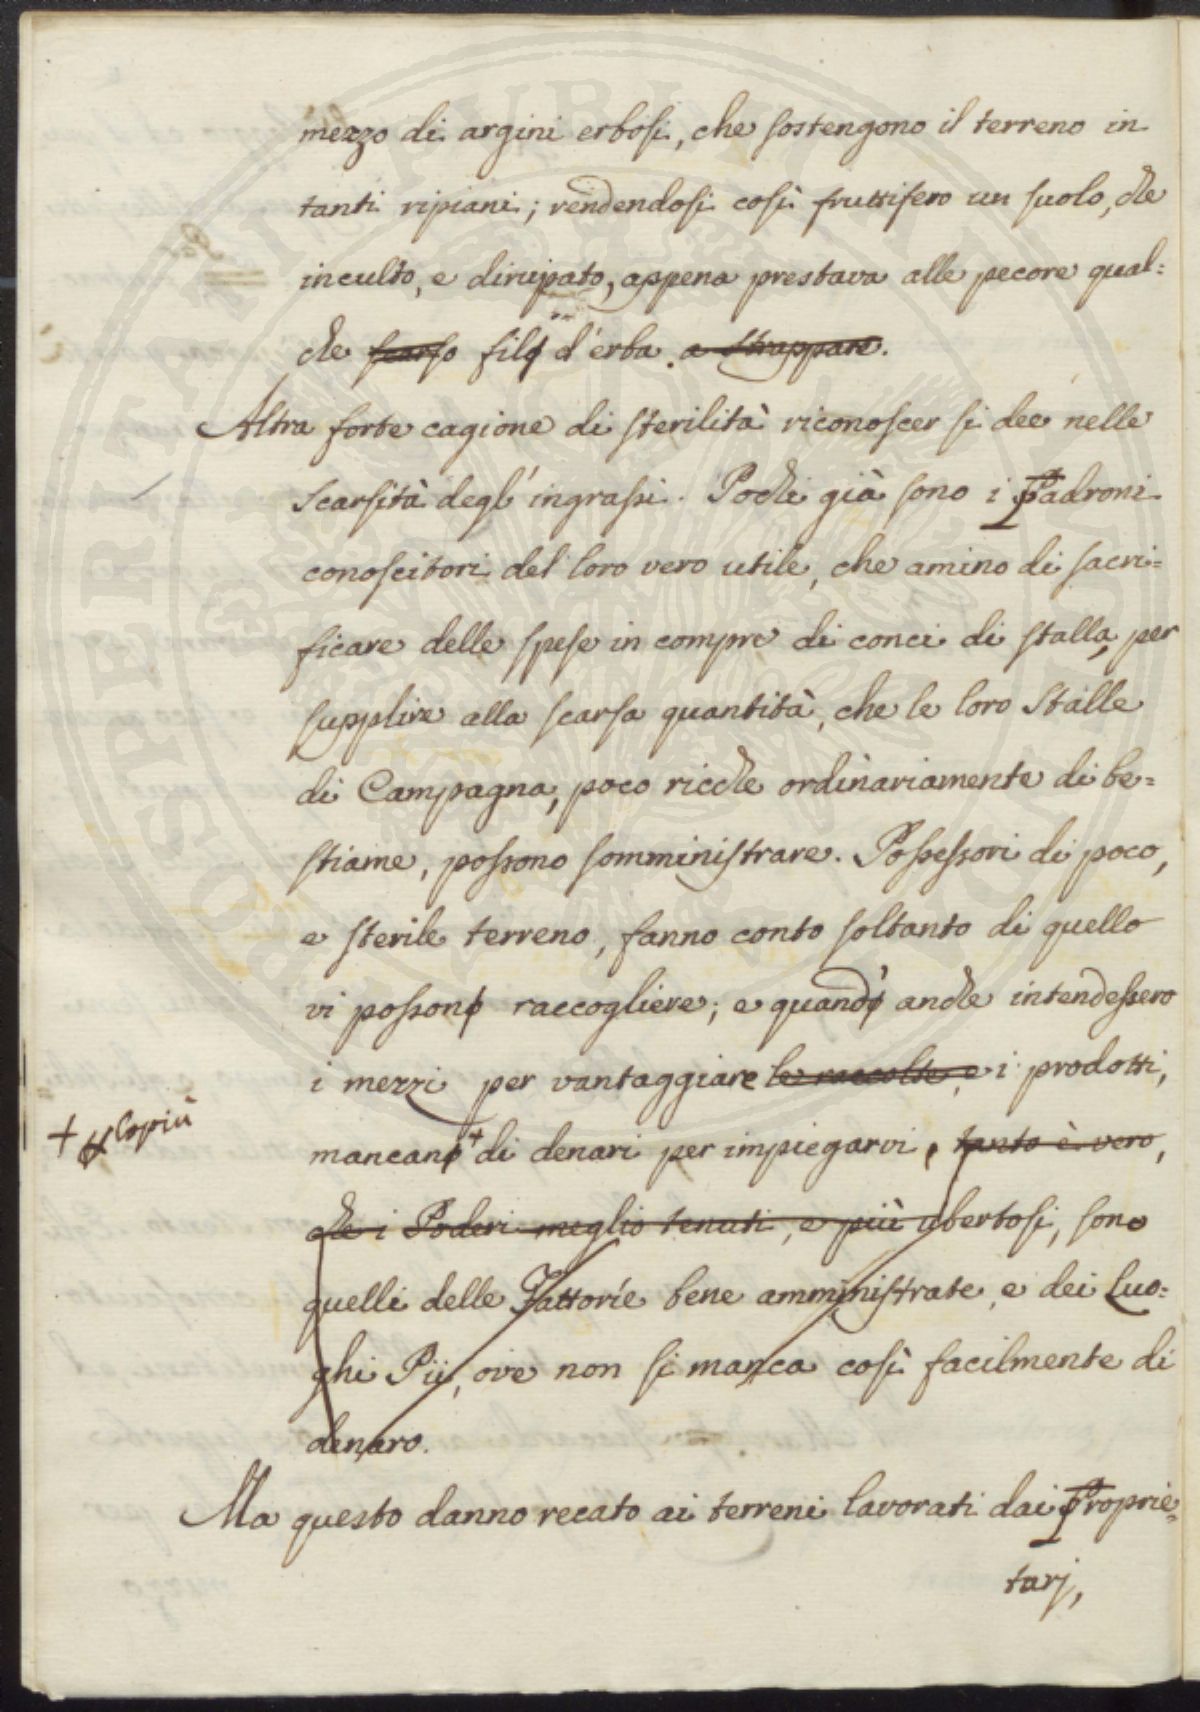 mezzo di argini erbosi, che sostengono il terreno in
tanti ripiani; rendendosi così fruttifero un suolo, che
inculto, e dirupato, appena prestava alle pecore qual=
che scarso filo d'erba. a strappare.
Altra forte cagione di sterilità riconoscer si dee nelle
scarsità degl'ingrassi. Pochi già sono i Padroni
conoscitori del loro vero utile, che amino di sacri=
ficare delle spese in compre di conci di stalla, per
supplire alla scarsa quantità, che le loro Stalle
di Campagna, poco ricche ordinariamente di be=
stiame, possono somministrare. Possessori di poco,
e sterile terreno, fanno conto soltanto di quello
vi possono raccogliere; e quando anche intendessero
i mezzi per vantaggiare le raccolte, e i prodotti,
+ lo più
mancano + di denari per impiegarvi, tanto è vero,
che i Poderi meglio tenuti, e più ubertosi, sono
quelli delle Fattorie bene amministrate, e dei Luo=
ghi Pii, ove non si manca così facilmente di
denaro.
Ma questo danno recato ai terreni lavorati dai Proprie=
tarj,